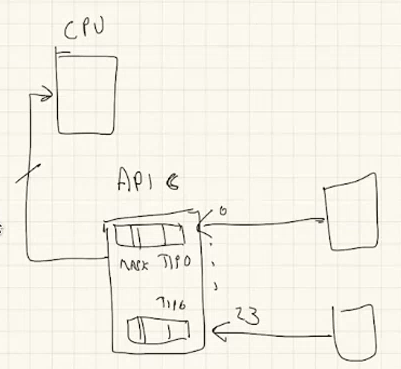 CPU
APIC
0
MASK TIPO
TIPO
23